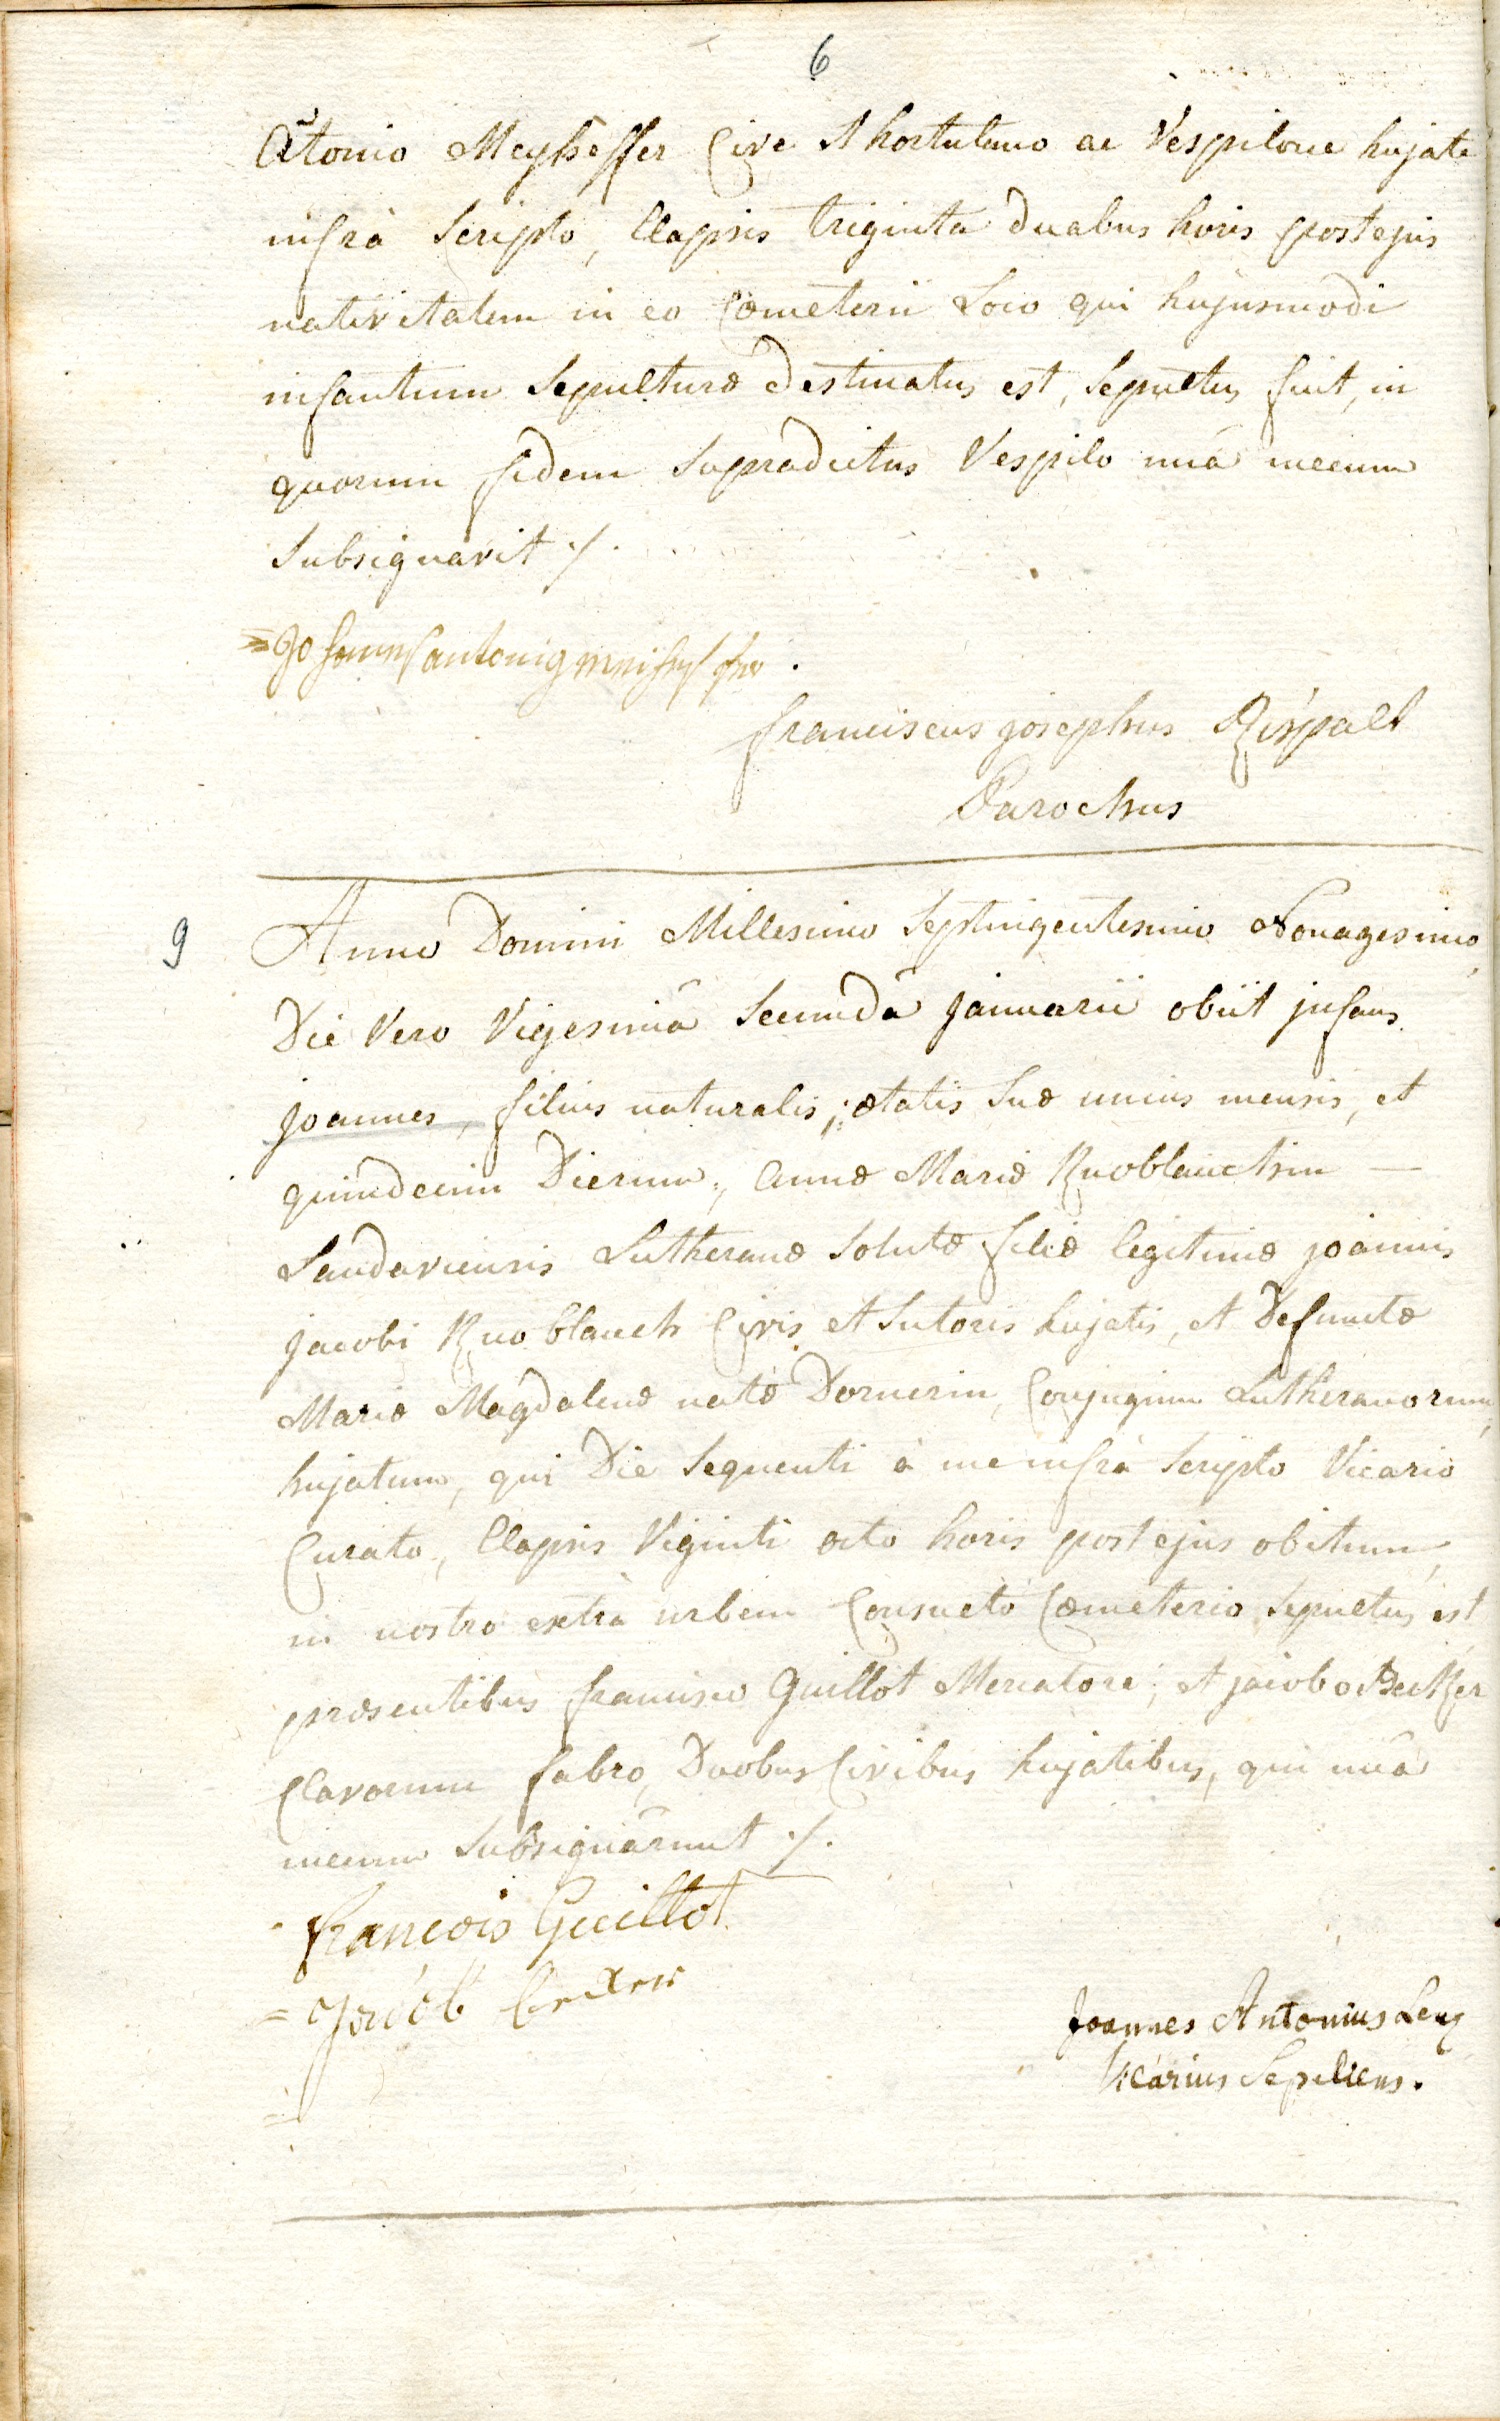 6
Aĩtonio Meyheffer Cive et hortulano ac Vespilone hujate
infrà Scripto, Elapsis triginta duabus horis post ejus
nativitatem in eo Cœmeterii Loco qui hujusmodi
infantum Sepulturæ destinatus est, Sepultus fuit, in
quorum fidem Supradictus Vespilo unâ mecum
Subsignavit ./.
Johannes antonig
franciscus josephus
Parochus
9 Anno Domini Millesimo Septingentesimo Nonagesimo,
Die Vero Vigesimâ Secundâ Januarii obiit jnfans
joannes, filius naturalis; ætatis Suæ unius mensis, et
quindecim Dierum; annæ Mariæ Knoblauchin —
Landaviensis Lutheranæ Solutæ filiæ legitimæ joannis
jacobi Knoblauch Civis et Sutoris hujatis, et Defunctæ
Mariæ Magdalenæ natæ Dornerin, Conjugum Lutheranorum,
hujatum, qui Die Sequenti à me infrà Scripto Vicario
Curato, Elapsis Viginti octo horis post ejus obitum,
in nostro extrà urbem Consueto Cœmeterio Sepultus est
præsentibus francisco Guillot Mercatore; et jacobo Becker
Clavorum fabro, Duobus Civibus hujatibus, qui unâ
mecum Subsignârunt ./.
francois Guillot
Jacob
Joannes Antonius Leng
Vicarius Sepeliens.